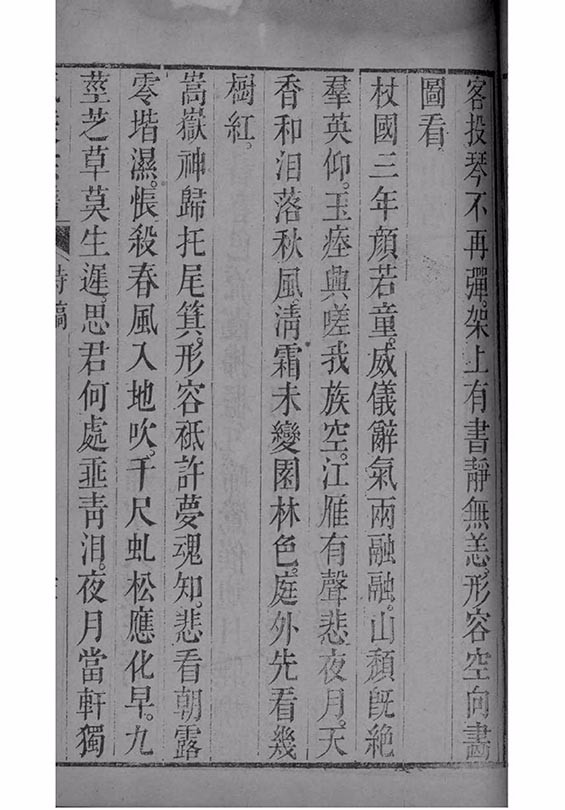 客投琴不再彈。架上有書靜無恙。形容空向畵
圖看。
杖國三年顏若童。威儀辭氣兩融融。山頹旣絶
羣英仰。玉瘞興嗟我族空。江雁有聲悲夜月。天
香和泪落秋風。淸霜未變園林色。庭外先看幾
樹紅。
嵩嶽神歸托尾箕。形容祇許夢魂知。悲看朝露
零堦濕。悵殺春風入地吹。千尺虬松應化早。九
莖芝草莫生遲。思君何處垂靑泪。夜月當軒獨
詩稿